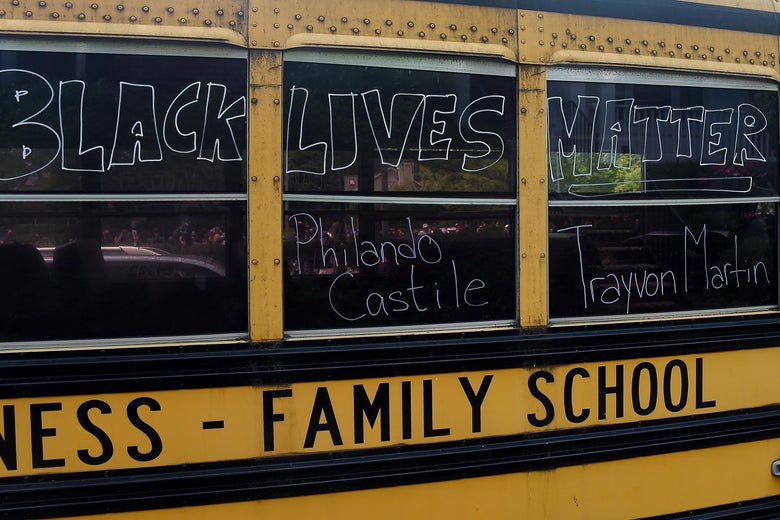 BLACK LIVES MATTER
Philando Castile
Trayvon Martin
NESS - FAMILY SCHOOL